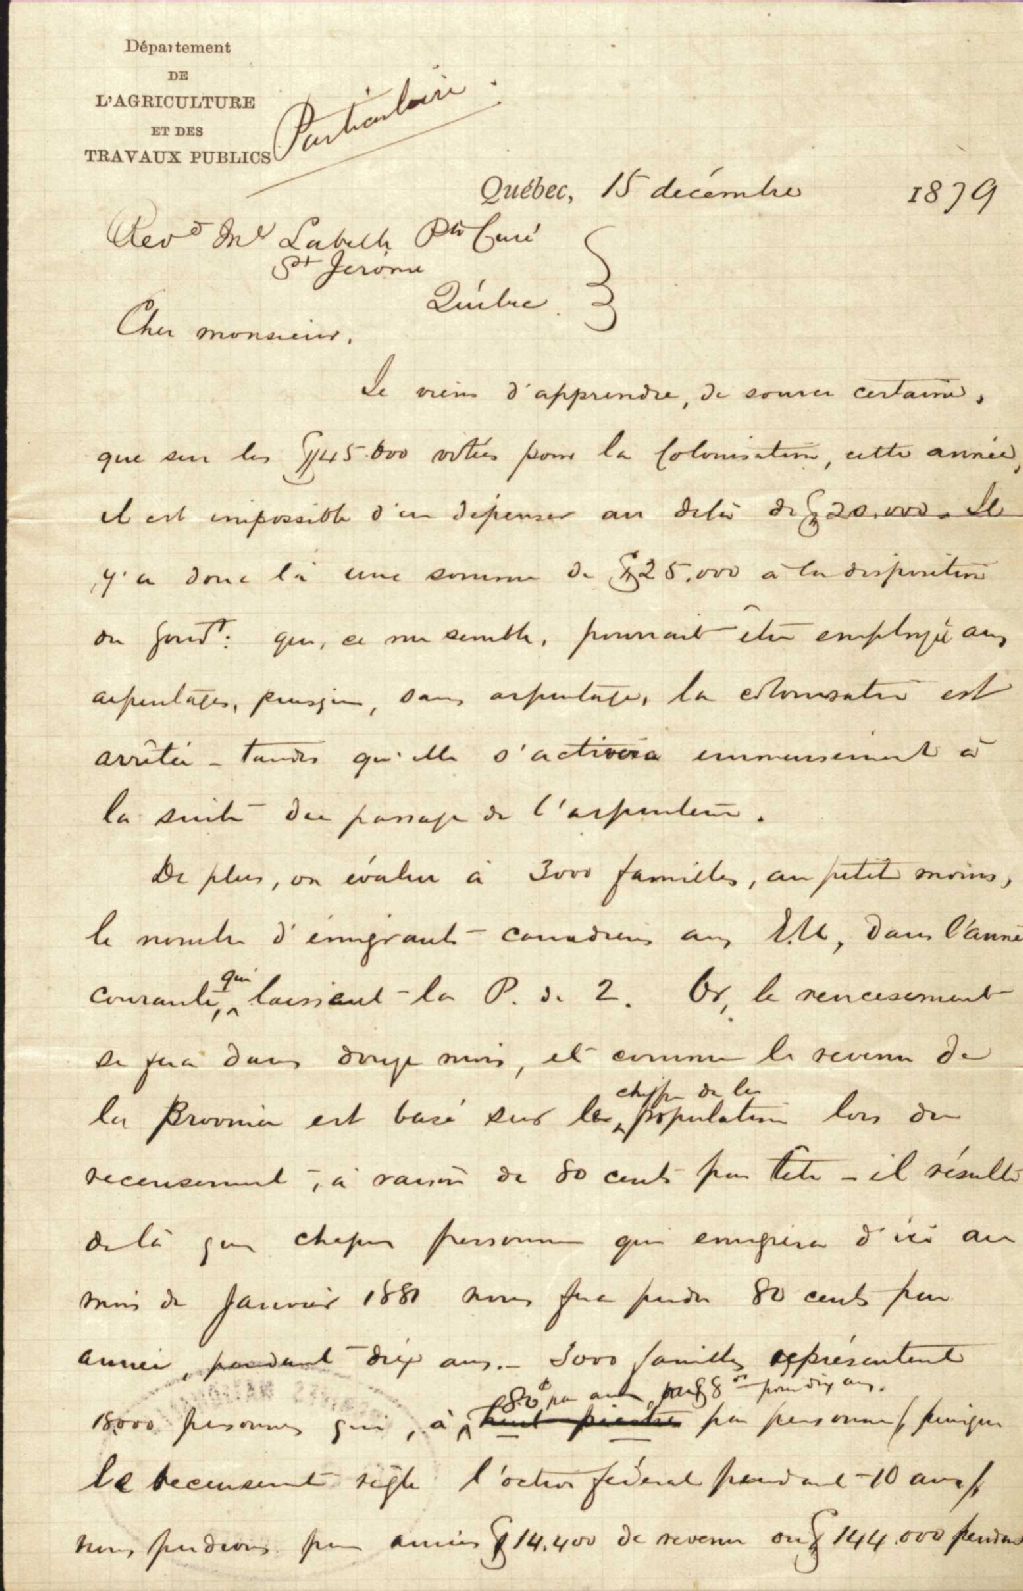 Département
DE
L'AGRICULTURE
ET DES
TRAVAUX PUBLICS
Particulaire
Québec, 15 décembre 1879
Revd Mr Labelle Ptre Curé
St Jérôme
Québec
Cher monsieur,
Je viens d'apprendre, de source certaine,
que sur les $45.000 votés pour la Colonisation, cette année,
il est impossible d'en dépenser au delà de $20.000. Il
y'a donc là une somme de $25.000 à la disposition
du Gouvt: qui, ce me semble, pourrait être employé aux
arpentages, puisque, sans arpentage, la colonisation est
arrêtée - tandis qu'elle s'activera immensément à
la suite du passage de l'arpenteur.
De plus, on évalue à 3000 familles, au petit moins,
le nombre d'émigrants canadiens aux E.U, dans l'année
courante, qui laissent la P. de Q. Or, le rencesement
se fera dans douze mois, et comme le revenu de
la Province est basé sur le chiffre de la population lors du
recensement, à raison de 80 cents par tête - il résulte
de là que chaque personne qui émigrera d'ici au
mois de Janvier 1881 nous fera perdre 80 cents par
année, pendant dix ans. - 3000 familles représentent
80c par année, ou $8 pour dix ans.
18000 personnes qui, à huit piastres par personne (puisque
le recensement règle l'octroi fédéral pendant 10 ans),
nous perdrons par année $14.400 de revenu ou $144.000 pendant